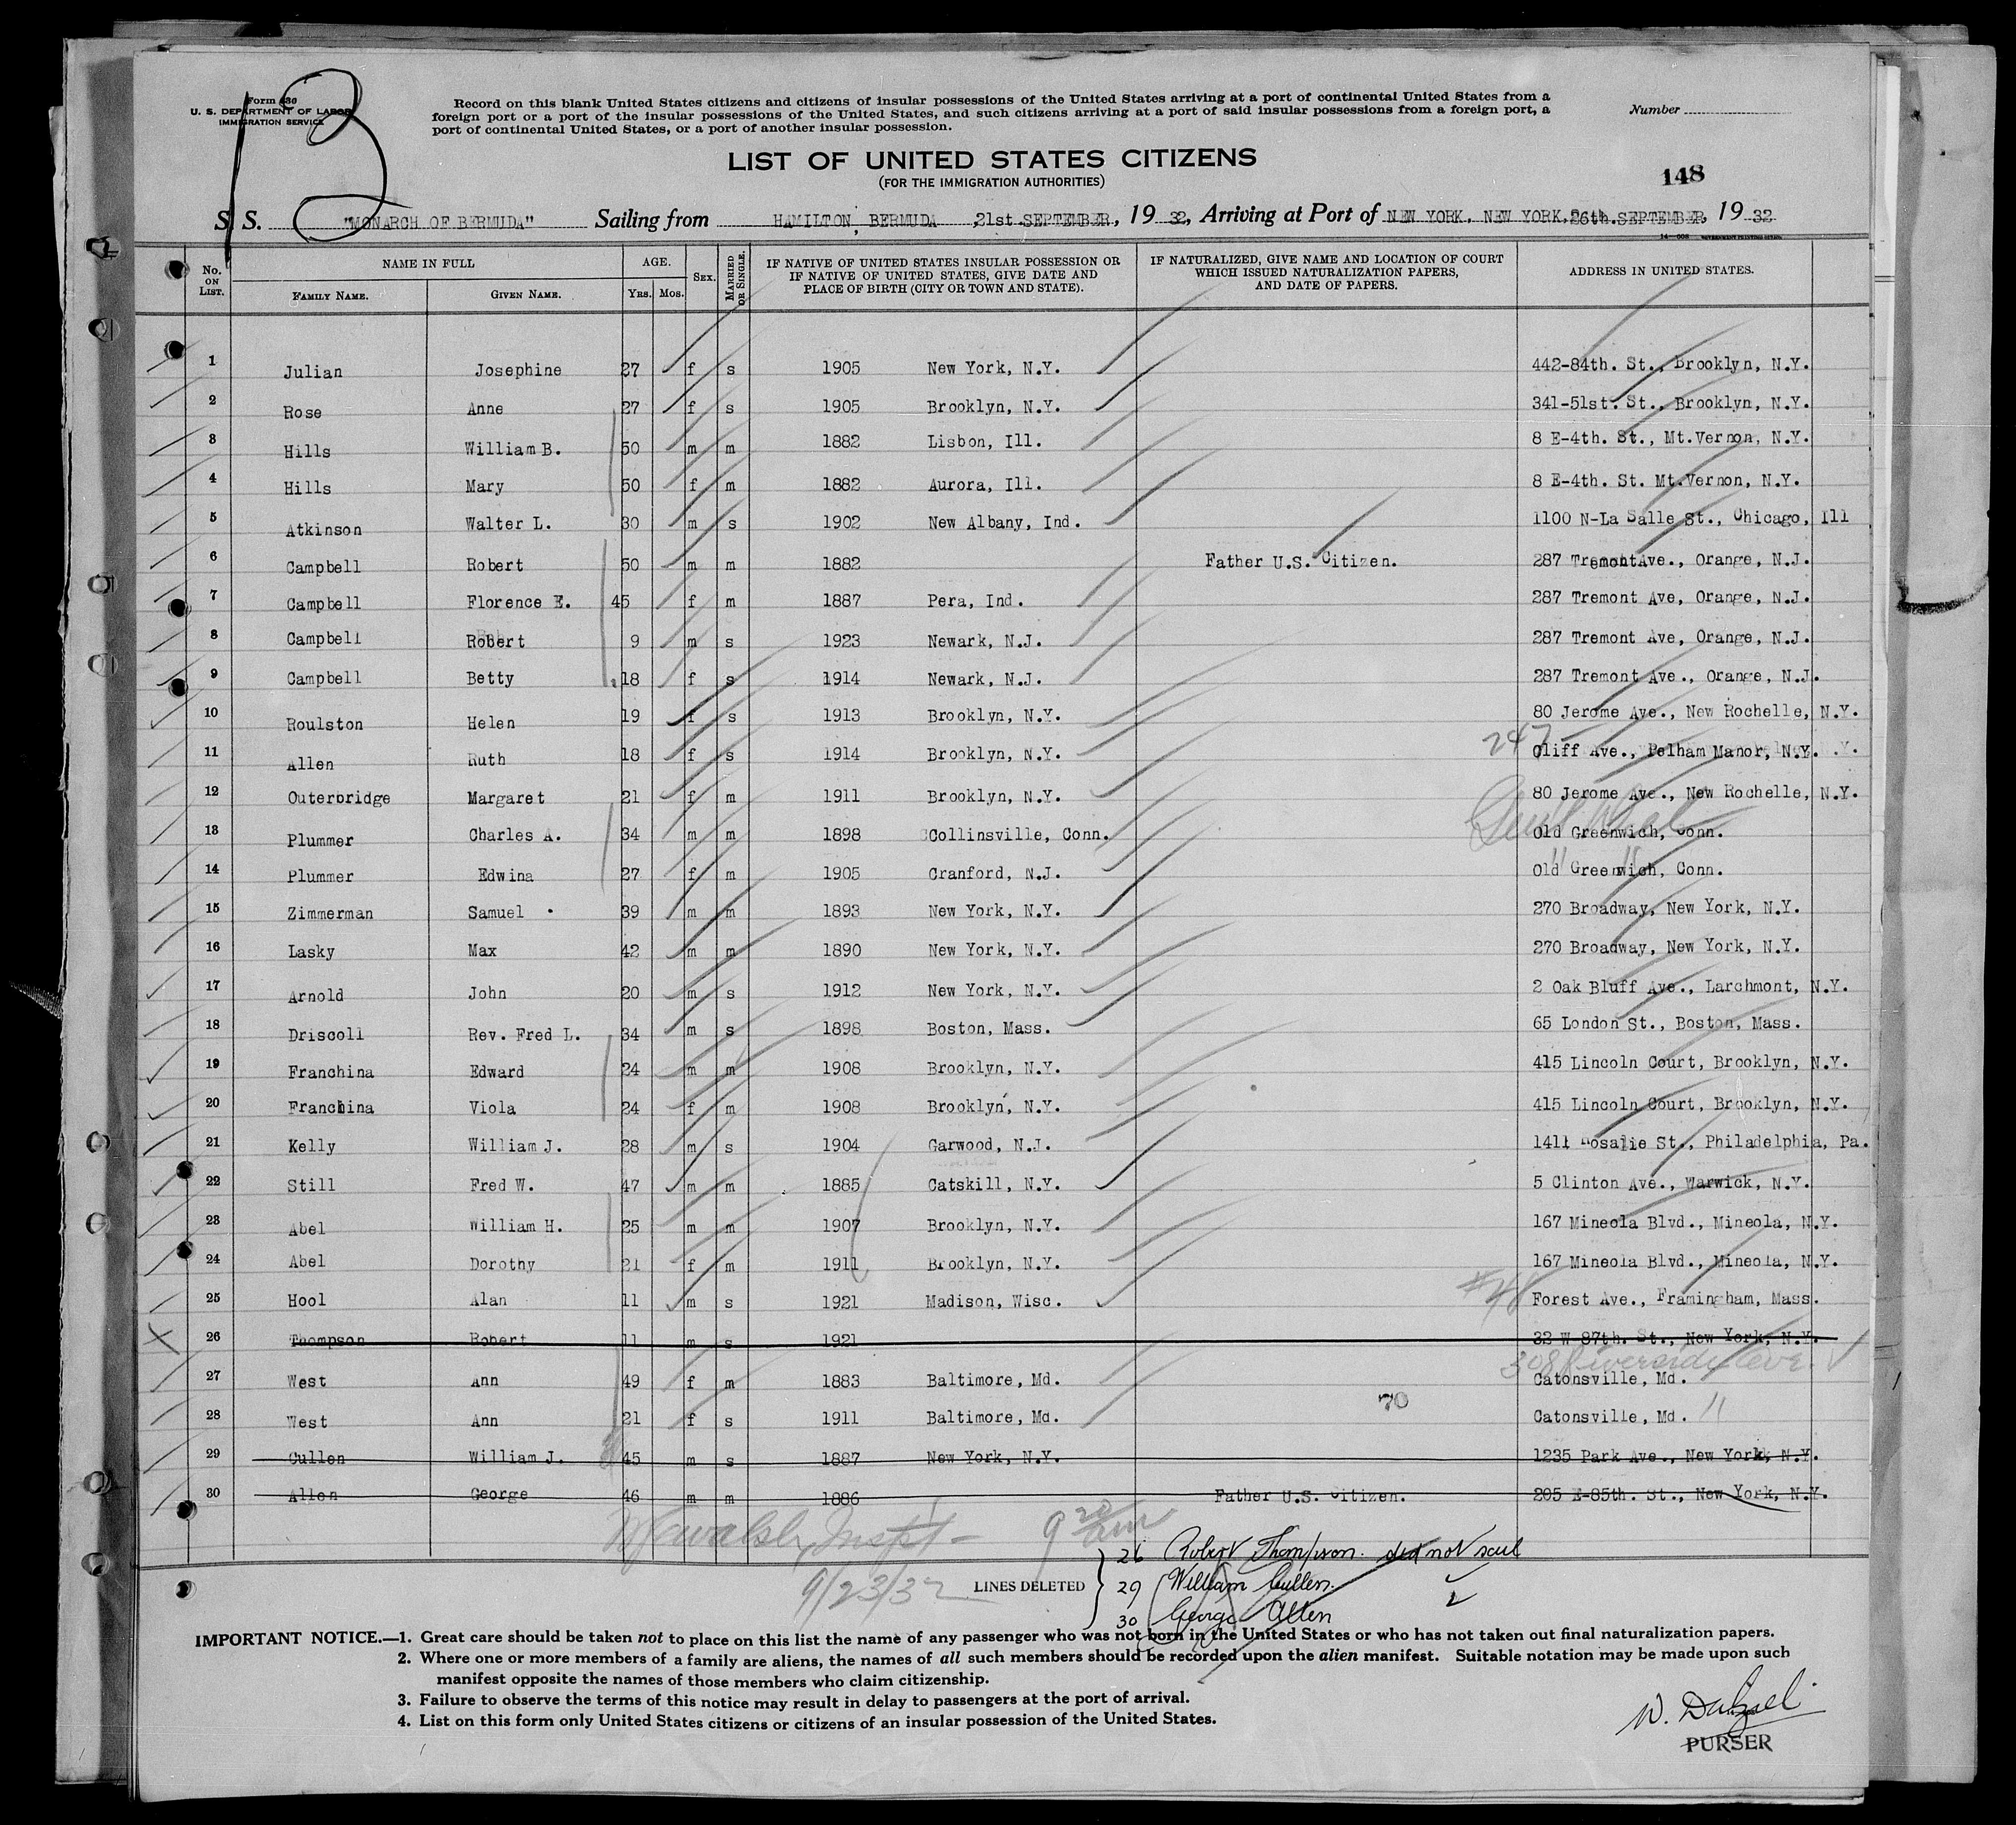 Form 630
U. S. DEPARTMENT OF LABOR
IMMIGRATION SERVICE
13
Record on this blank United States citizens and citizens of insular possessions of the United States arriving at a port of continental United States from a
foreign port or a port of the insular possessions of the United States, and such citizens arriving at a port of said insular possessions from a foreign port, a
port of continental United States, or a port of another insular possession.
Number
LIST OF UNITED STATES CITIZENS
(FOR THE IMMIGRATION AUTHORITIES)
148
S. S. "MONARCH OF BERMUDA" Sailing from HAMILTON, BERMUDA, 21st. SEPTEMBER, 19 32, Arriving at Port of NEW YORK, NEW YORK, 26th. SEPTEMBER, 19 32
No. ON LIST. NAME IN FULL FAMILY NAME. GIVEN NAME. AGE. YRS. MOS. SEX. MARRIED OR SINGLE. IF NATIVE OF UNITED STATES INSULAR POSSESSION OR IF NATIVE OF UNITED STATES, GIVE DATE AND PLACE OF BIRTH (CITY OR TOWN AND STATE). IF NATURALIZED, GIVE NAME AND LOCATION OF COURT WHICH ISSUED NATURALIZATION PAPERS, AND DATE OF PAPERS. ADDRESS IN UNITED STATES.
1 Julian Josephine 27 f s 1905 New York, N.Y. 442-84th. St., Brooklyn, N.Y.
2 Rose Anne 27 f s 1905 Brooklyn, N.Y. 341-51st. St., Brooklyn, N.Y.
3 Hills William B. 50 m m 1882 Lisbon, Ill. 8 E-4th. St., Mt.Vernon, N.Y.
4 Hills Mary 50 f m 1882 Aurora, Ill. 8 E-4th. St. Mt.Vernon, N.Y.
5 Atkinson Walter L. 30 m s 1902 New Albany, Ind. 1100 N-La Salle St., Chicago, Ill
6 Campbell Robert 50 m m 1882 Father U.S. Citizen. 287 Tremont Ave., Orange, N.J.
7 Campbell Florence E. 45 f m 1887 Pera, Ind. 287 Tremont Ave, Orange, N.J.
8 Campbell Robert 9 m s 1923 Newark, N.J. 287 Tremont Ave, Orange, N.J.
9 Campbell Betty 18 f s 1914 Newark, N.J. 287 Tremont Ave., Orange, N.J.
10 Roulston Helen 19 f s 1913 Brooklyn, N.Y. 80 Jerome Ave., New Rochelle, N.Y.
11 Allen Ruth 18 f s 1914 Brooklyn, N.Y. 247 Cliff Ave., Pelham Manor, N.Y.
12 Outerbridge Margaret 21 f m 1911 Brooklyn, N.Y. 80 Jerome Ave., New Rochelle, N.Y.
13 Plummer Charles A. 34 m m 1898 Collinsville, Conn. Old Greenwich, Conn.
14 Plummer Edwina 27 f m 1905 Cranford, N.J. Old Greenwich, Conn.
15 Zimmerman Samuel 39 m m 1893 New York, N.Y. 270 Broadway, New York, N.Y.
16 Lasky Max 42 m m 1890 New York, N.Y. 270 Broadway, New York, N.Y.
17 Arnold John 20 m s 1912 New York, N.Y. 2 Oak Bluff Ave., Larchmont, N.Y.
18 Driscoll Rev. Fred L. 34 m s 1898 Boston, Mass. 65 London St., Boston, Mass.
19 Franchina Edward 24 m m 1908 Brooklyn, N.Y. 415 Lincoln Court, Brooklyn, N.Y.
20 Franchina Viola 24 f m 1908 Brooklyn, N.Y. 415 Lincoln Court, Brooklyn, N.Y.
21 Kelly William J. 28 m s 1904 Garwood, N.J. 1411 Rosalie St., Philadelphia, Pa.
22 Still Fred W. 47 m m 1885 Catskill, N.Y. 5 Clinton Ave., Warwick, N.Y.
23 Abel William H. 25 m m 1907 Brooklyn, N.Y. 167 Mineola Blvd., Mineola, N.Y.
24 Abel Dorothy 21 f m 1911 Brooklyn, N.Y. 167 Mineola Blvd., Mineola, N.Y.
25 Hool Alan 11 m s 1921 Madison, Wisc. #48 Forest Ave., Framingham, Mass.
26 Thompson Robert 11 m s 1921 32 W-87th. St., New York, N.Y.
308 Riverside Ave.
27 West Ann 49 f m 1883 Baltimore, Md. Catonsville, Md.
70
28 West Ann 21 f s 1911 Baltimore, Md. Catonsville, Md. "
29 Cullen William J. 45 m s 1887 New York, N.Y. 1235 Park Ave., New York, N.Y.
30 Allen George 46 m m 1886 Father U.S. Citizen. 205 E-85th. St., New York, N.Y.
Walsh, Inspt - 9 20 am
9/23/32
LINES DELETED
26 Robert Thompson. did not sail
29 William Cullen.
30 George Allen
IMPORTANT NOTICE.—1. Great care should be taken not to place on this list the name of any passenger who was not born in the United States or who has not taken out final naturalization papers.
2. Where one or more members of a family are aliens, the names of all such members should be recorded upon the alien manifest. Suitable notation may be made upon such
manifest opposite the names of those members who claim citizenship.
3. Failure to observe the terms of this notice may result in delay to passengers at the port of arrival.
4. List on this form only United States citizens or citizens of an insular possession of the United States.
W. Dalzell
PURSER